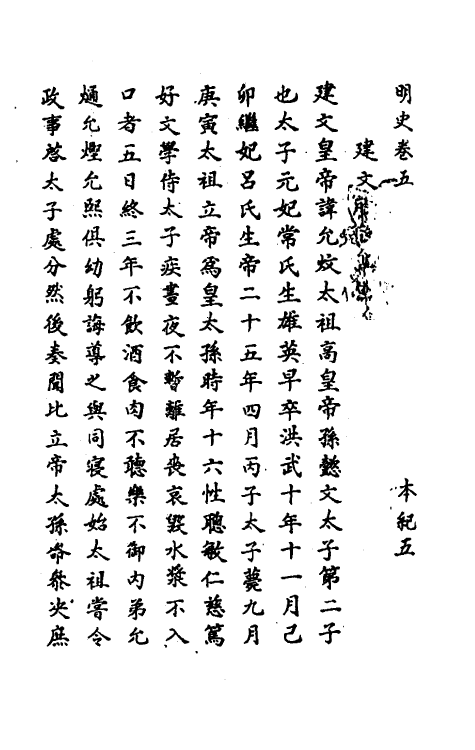 明史卷五 本紀五
建文
建文皇帝諱允炆太祖高皇帝孫懿文太子第二子
也太子元妃常氏生雄英早卒洪武十年十一月己
卯繼妃呂氏生帝二十五年四月丙子太子薨九月
庚寅太祖立帝爲皇太孫時年十六性聰敏仁慈篤
好文學侍太子疾晝夜不暫離居喪哀毀水漿不入
口者五日終三年不飲酒食肉不聽樂不御內弟允
熥允熞允熙俱幼躬誨導之與同寢處始太祖嘗令
政事啓太子處分然後奏聞比立帝太孫命叅決庶